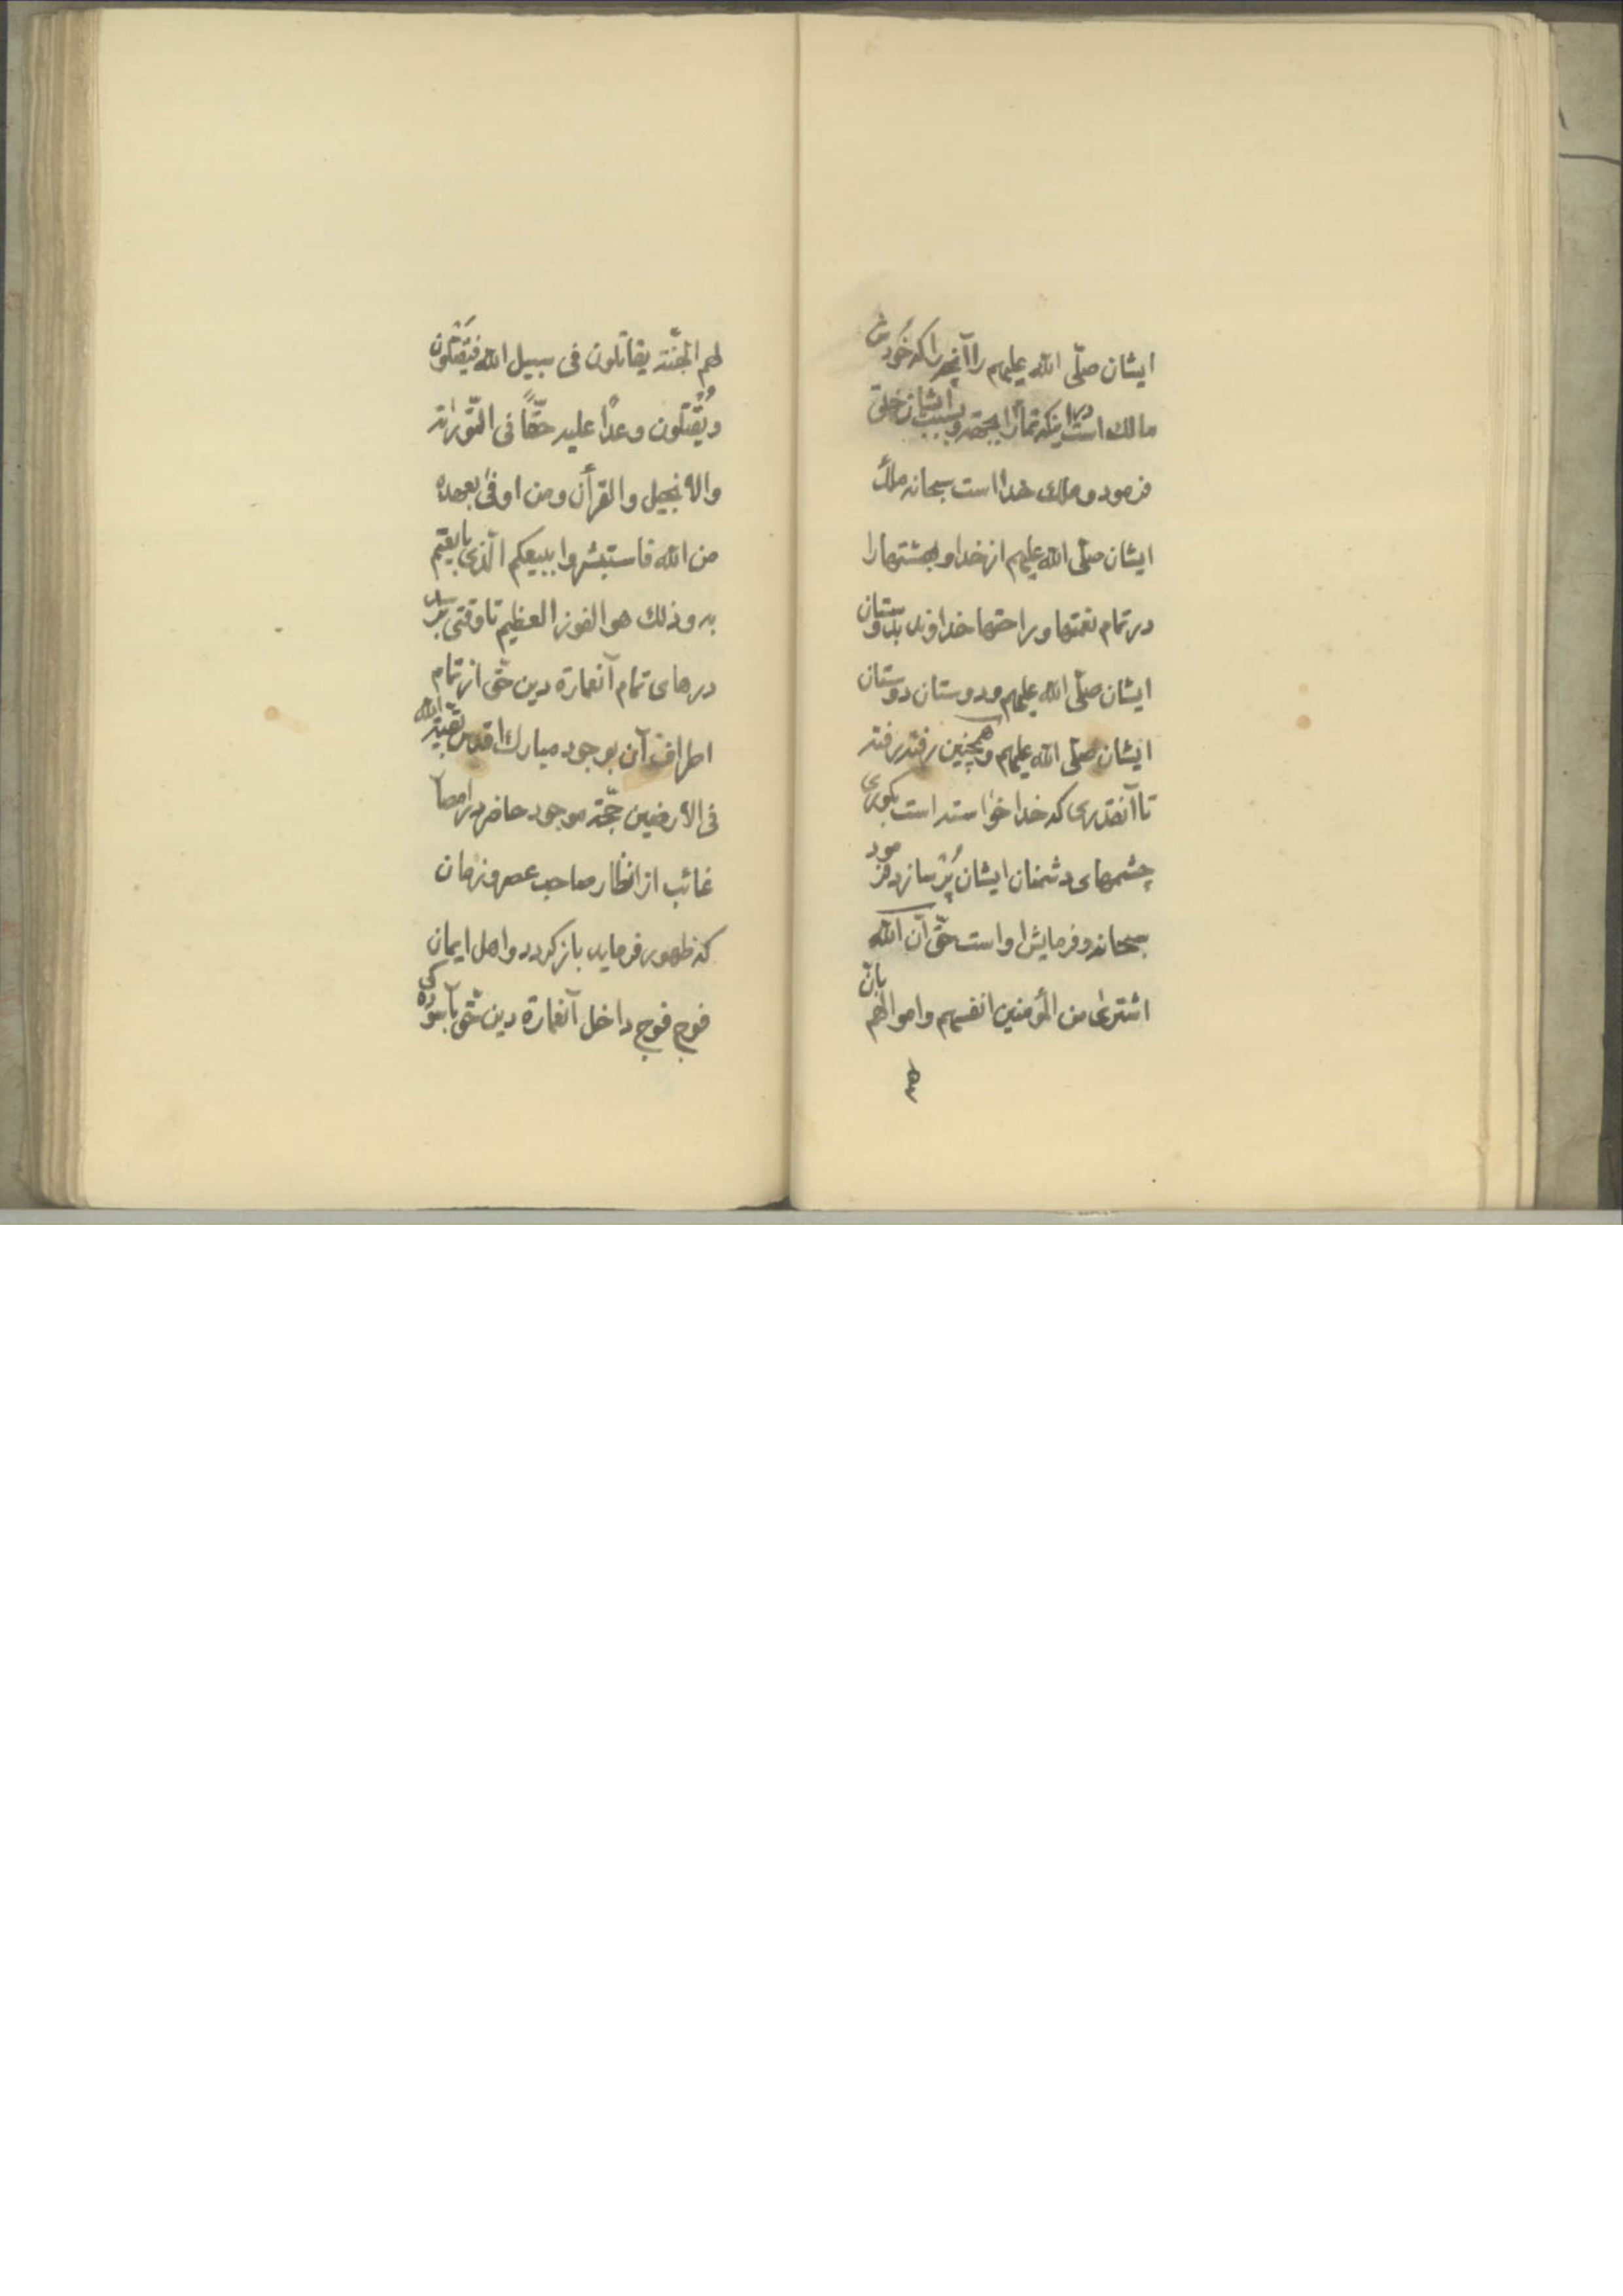 ایشان صلّی الله علیهم را آنچه را که خودش
مالک است در اینکه تماماً بجهة و بسبب ایشان خلق
فرمود و مالک خدا است سبحانه ملک
ایشان صلّی الله علیهم از خدا و بهشتها را
در تمام نعمتها و راحتها خداوند بدوستان
ایشان صلّی الله علیهم و دوستان دوستان
ایشان صلّی الله علیهم و همچنین رفته رفته
تا آنقدری که خدا خواسته است بکوری
چشمهای دشمنان ایشان پُر سازد فرمود
سبحانه و فرمایش او است حقّ انّ الله
اشتری من المؤمنین انفسهم و اموالهم بانّ
لهم الجنّة یقاتلون فی سبیل الله فیَقتُلون
و یُقتَلون وعداً علیه حقّاً فی التّوراة
والانجیل والقرآن ومن اوفی بعهده
من الله فاستبشروا ببیعکم الّذی بایعتم
به وذلک هو الفوز العظیم تا وقتی برسد
درهای تمام آنعمارة دین حقّ از تمام
اطراف آن بوجود مبارک اقدس بقیّة الله
فی الارضین حجّة موجود حاضر در امصار
غائب از انظار صاحب عصر و زمان
که ظهور فرماید باز گردد و اهل ایمان
فوج فوج داخل آنعمارة دین حقّ بآسودگی